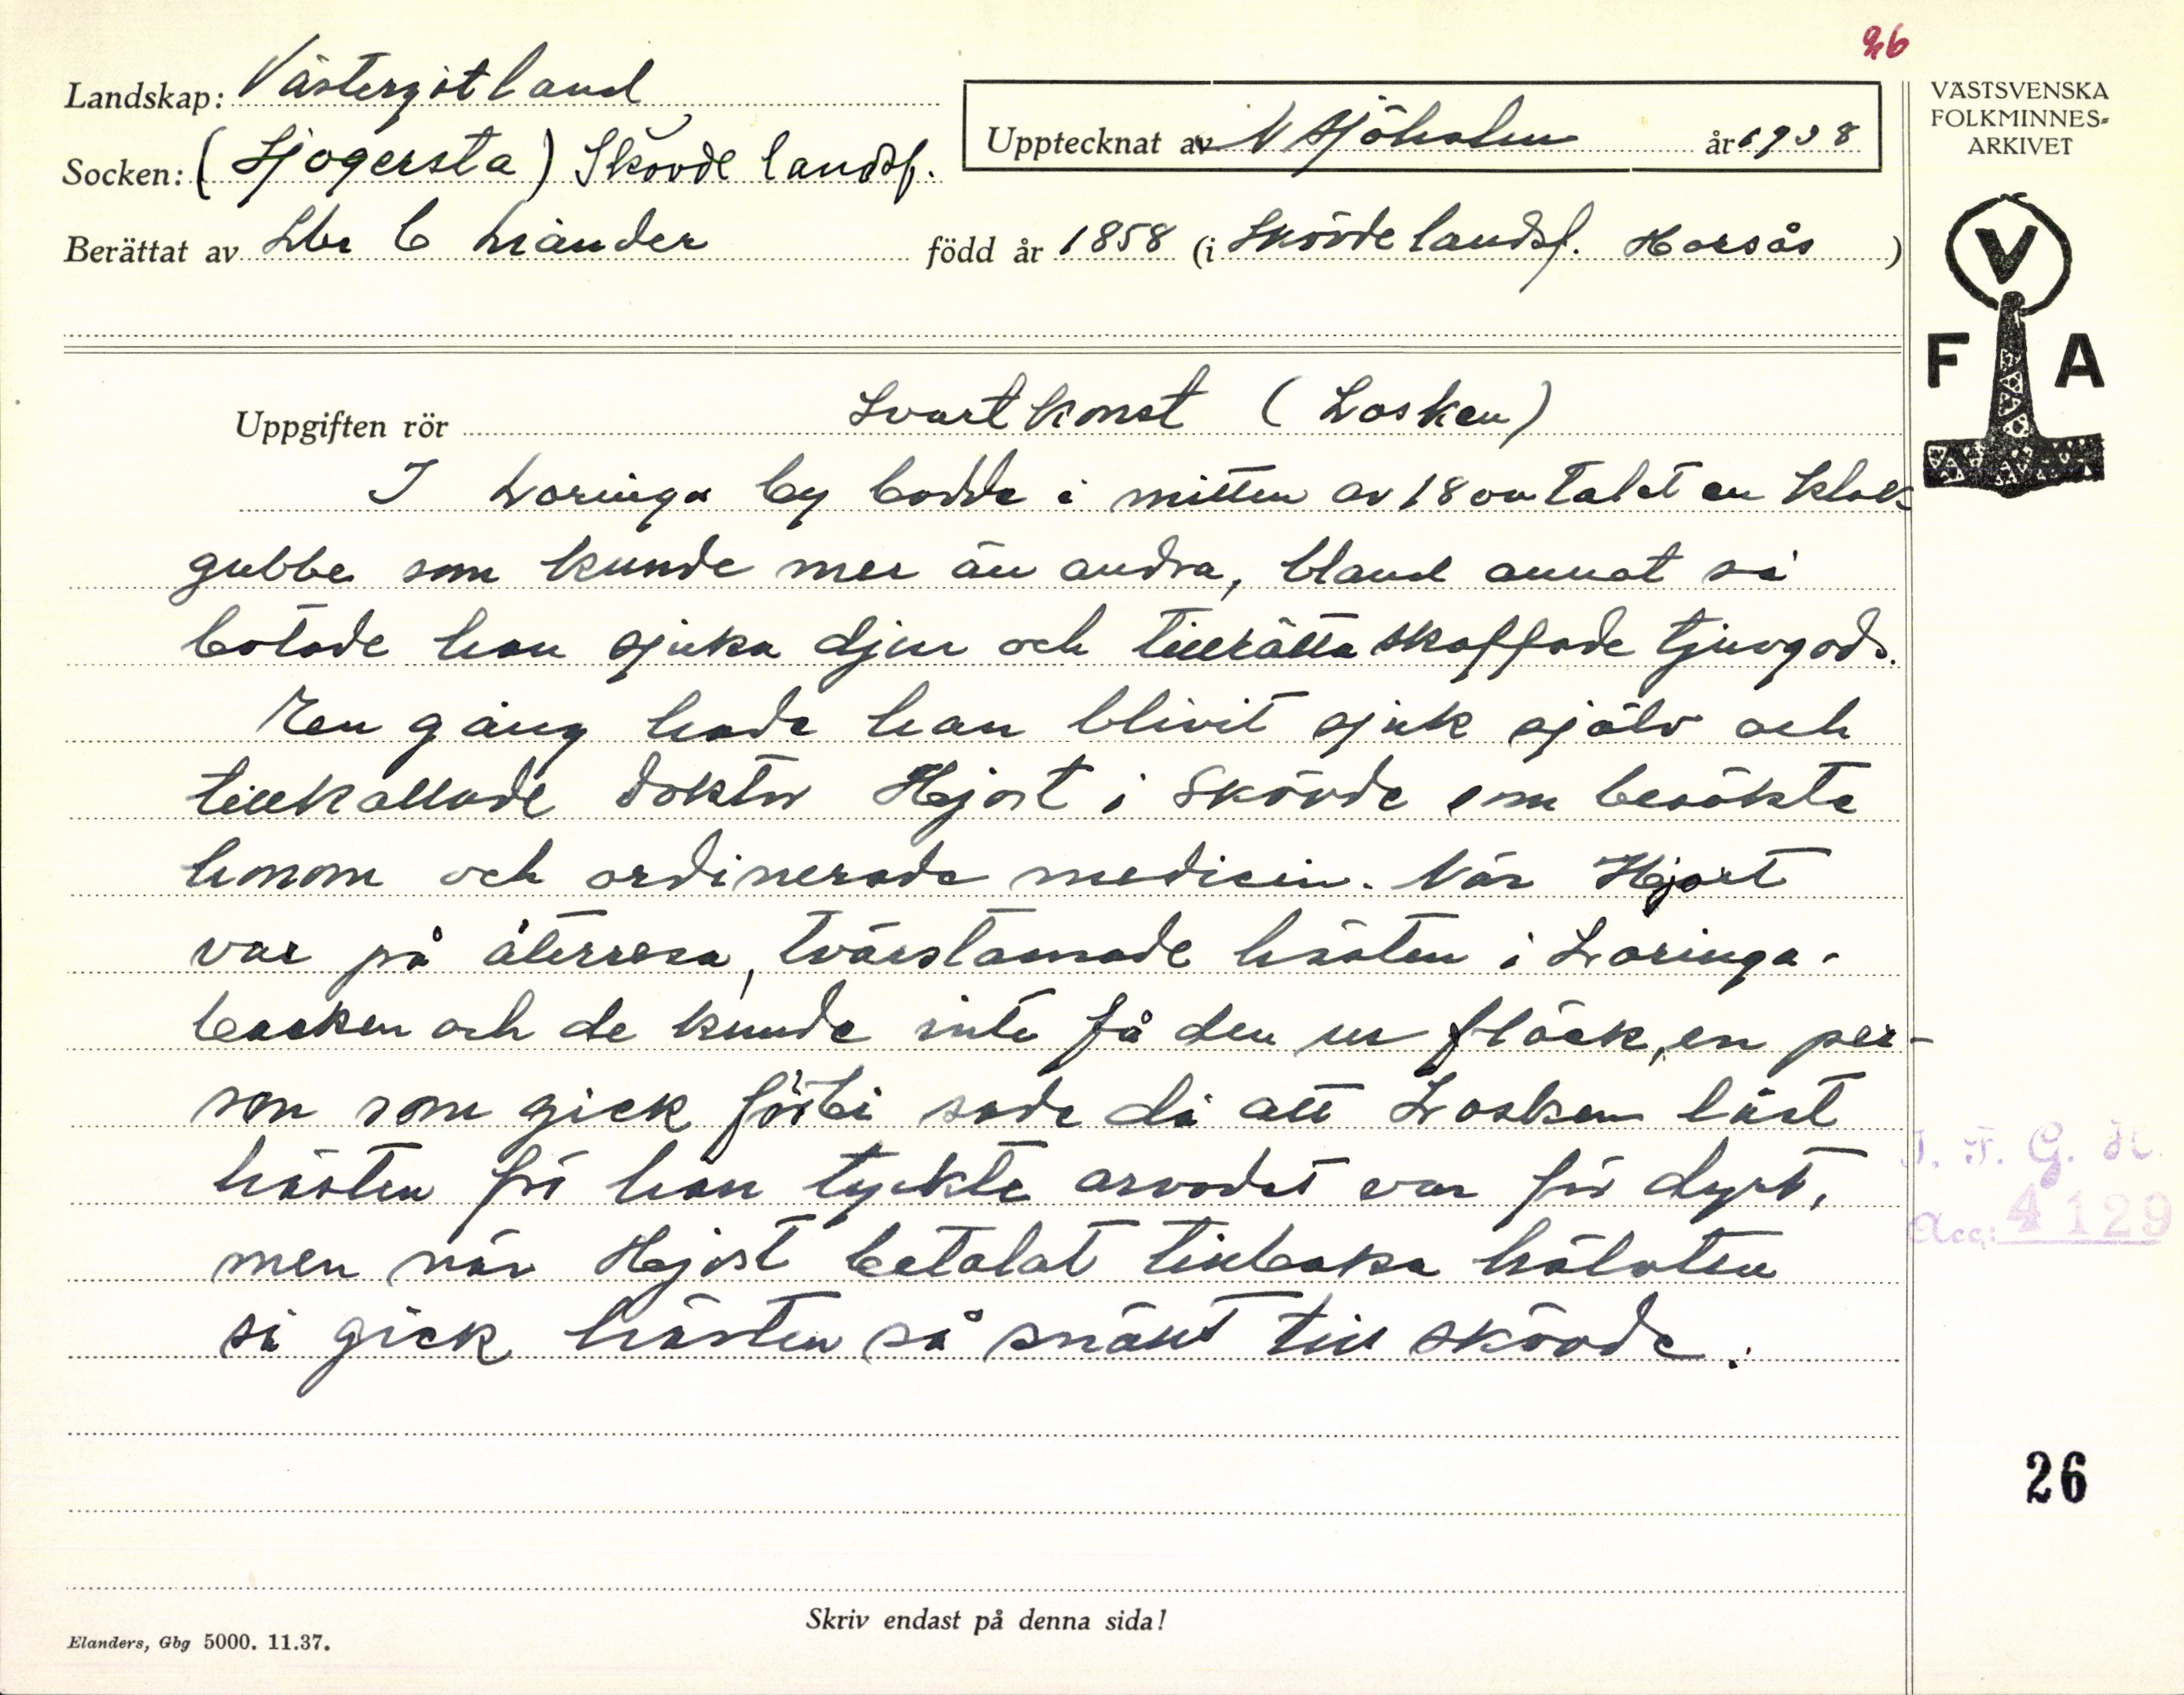 26
Landskap: Västergötland
Socken: (Sjogersta) Skövde landsf.
Upptecknat av N Sjöholm år 1938
Berättat av C född år 1858 (i Skövde landsf. Horsås)
VÄSTSVENSKA
FOLKMINNES-
ARKIVET
V
F A
Uppgiften rör Svartkonst (Losken)
I Loringa by bodde i mitten av 1800 talet en klok
gubbe som kunde mer än andra, bland annat så
botade han sjuka djur och tillrätta skaffade tjuvgods.
En gång hade han blivit sjuk själv och
tillkallade doktor Hjort i Skövde som besökte
honom och ordinerade medicin. När Hjort
var på återresa, tvärstannade hästen i Loringa-
backen och de kunde inte få den ur fläck, en per-
son som gick förbi sade då att Losken låst
hästen för han tyckte arvodet var för dyrt,
men när Hjort betalat tillbaka hälvten
så gick hästen så snällt till Skövde.
I. F. G. H.
Acc: 4129
26
Skriv endast på denna sida!
Elanders, Gbg 5000. 11.37.